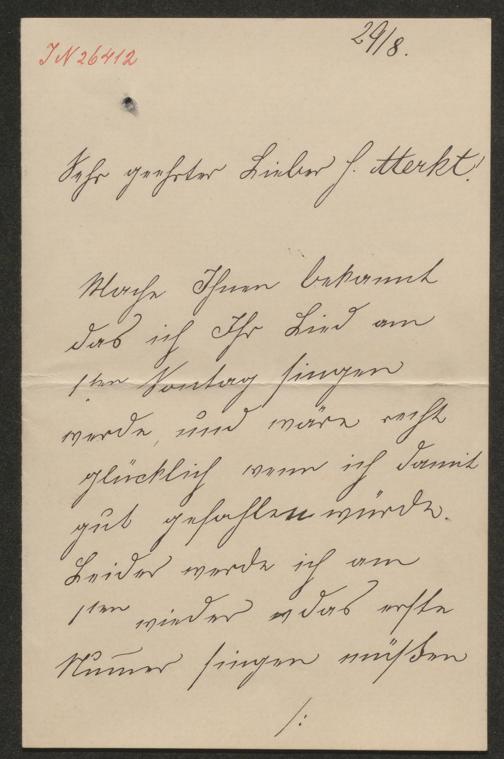 29/8.
IN 26412
Sehr geehrter Lieber H. Merkt!
Mache Ihnen bekannt
das ich Ihr Lied am
1ten Sontag singen
werde, und wäre recht
glücklich wenn ich damit
gut gefahlen würde.
Leider werde ich am
1ten wieder das erste
Num̄er singen müßen
/: